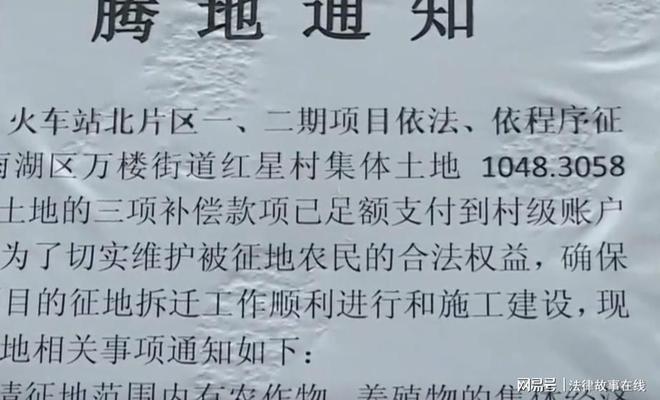 腾地通知
火车站北片区一、二期项目依法、依程序征
湖区万楼街道红星村集体土地 1048.3058
土地的三项补偿款项已足额支付到村级账户
为了切实维护被征地农民的合法权益，确保
目的征地拆迁工作顺利进行和施工建设，现
地相关事项通知如下：
请征地范围内有农作物、养殖物的集体经济
网易号 | 法律故事在线